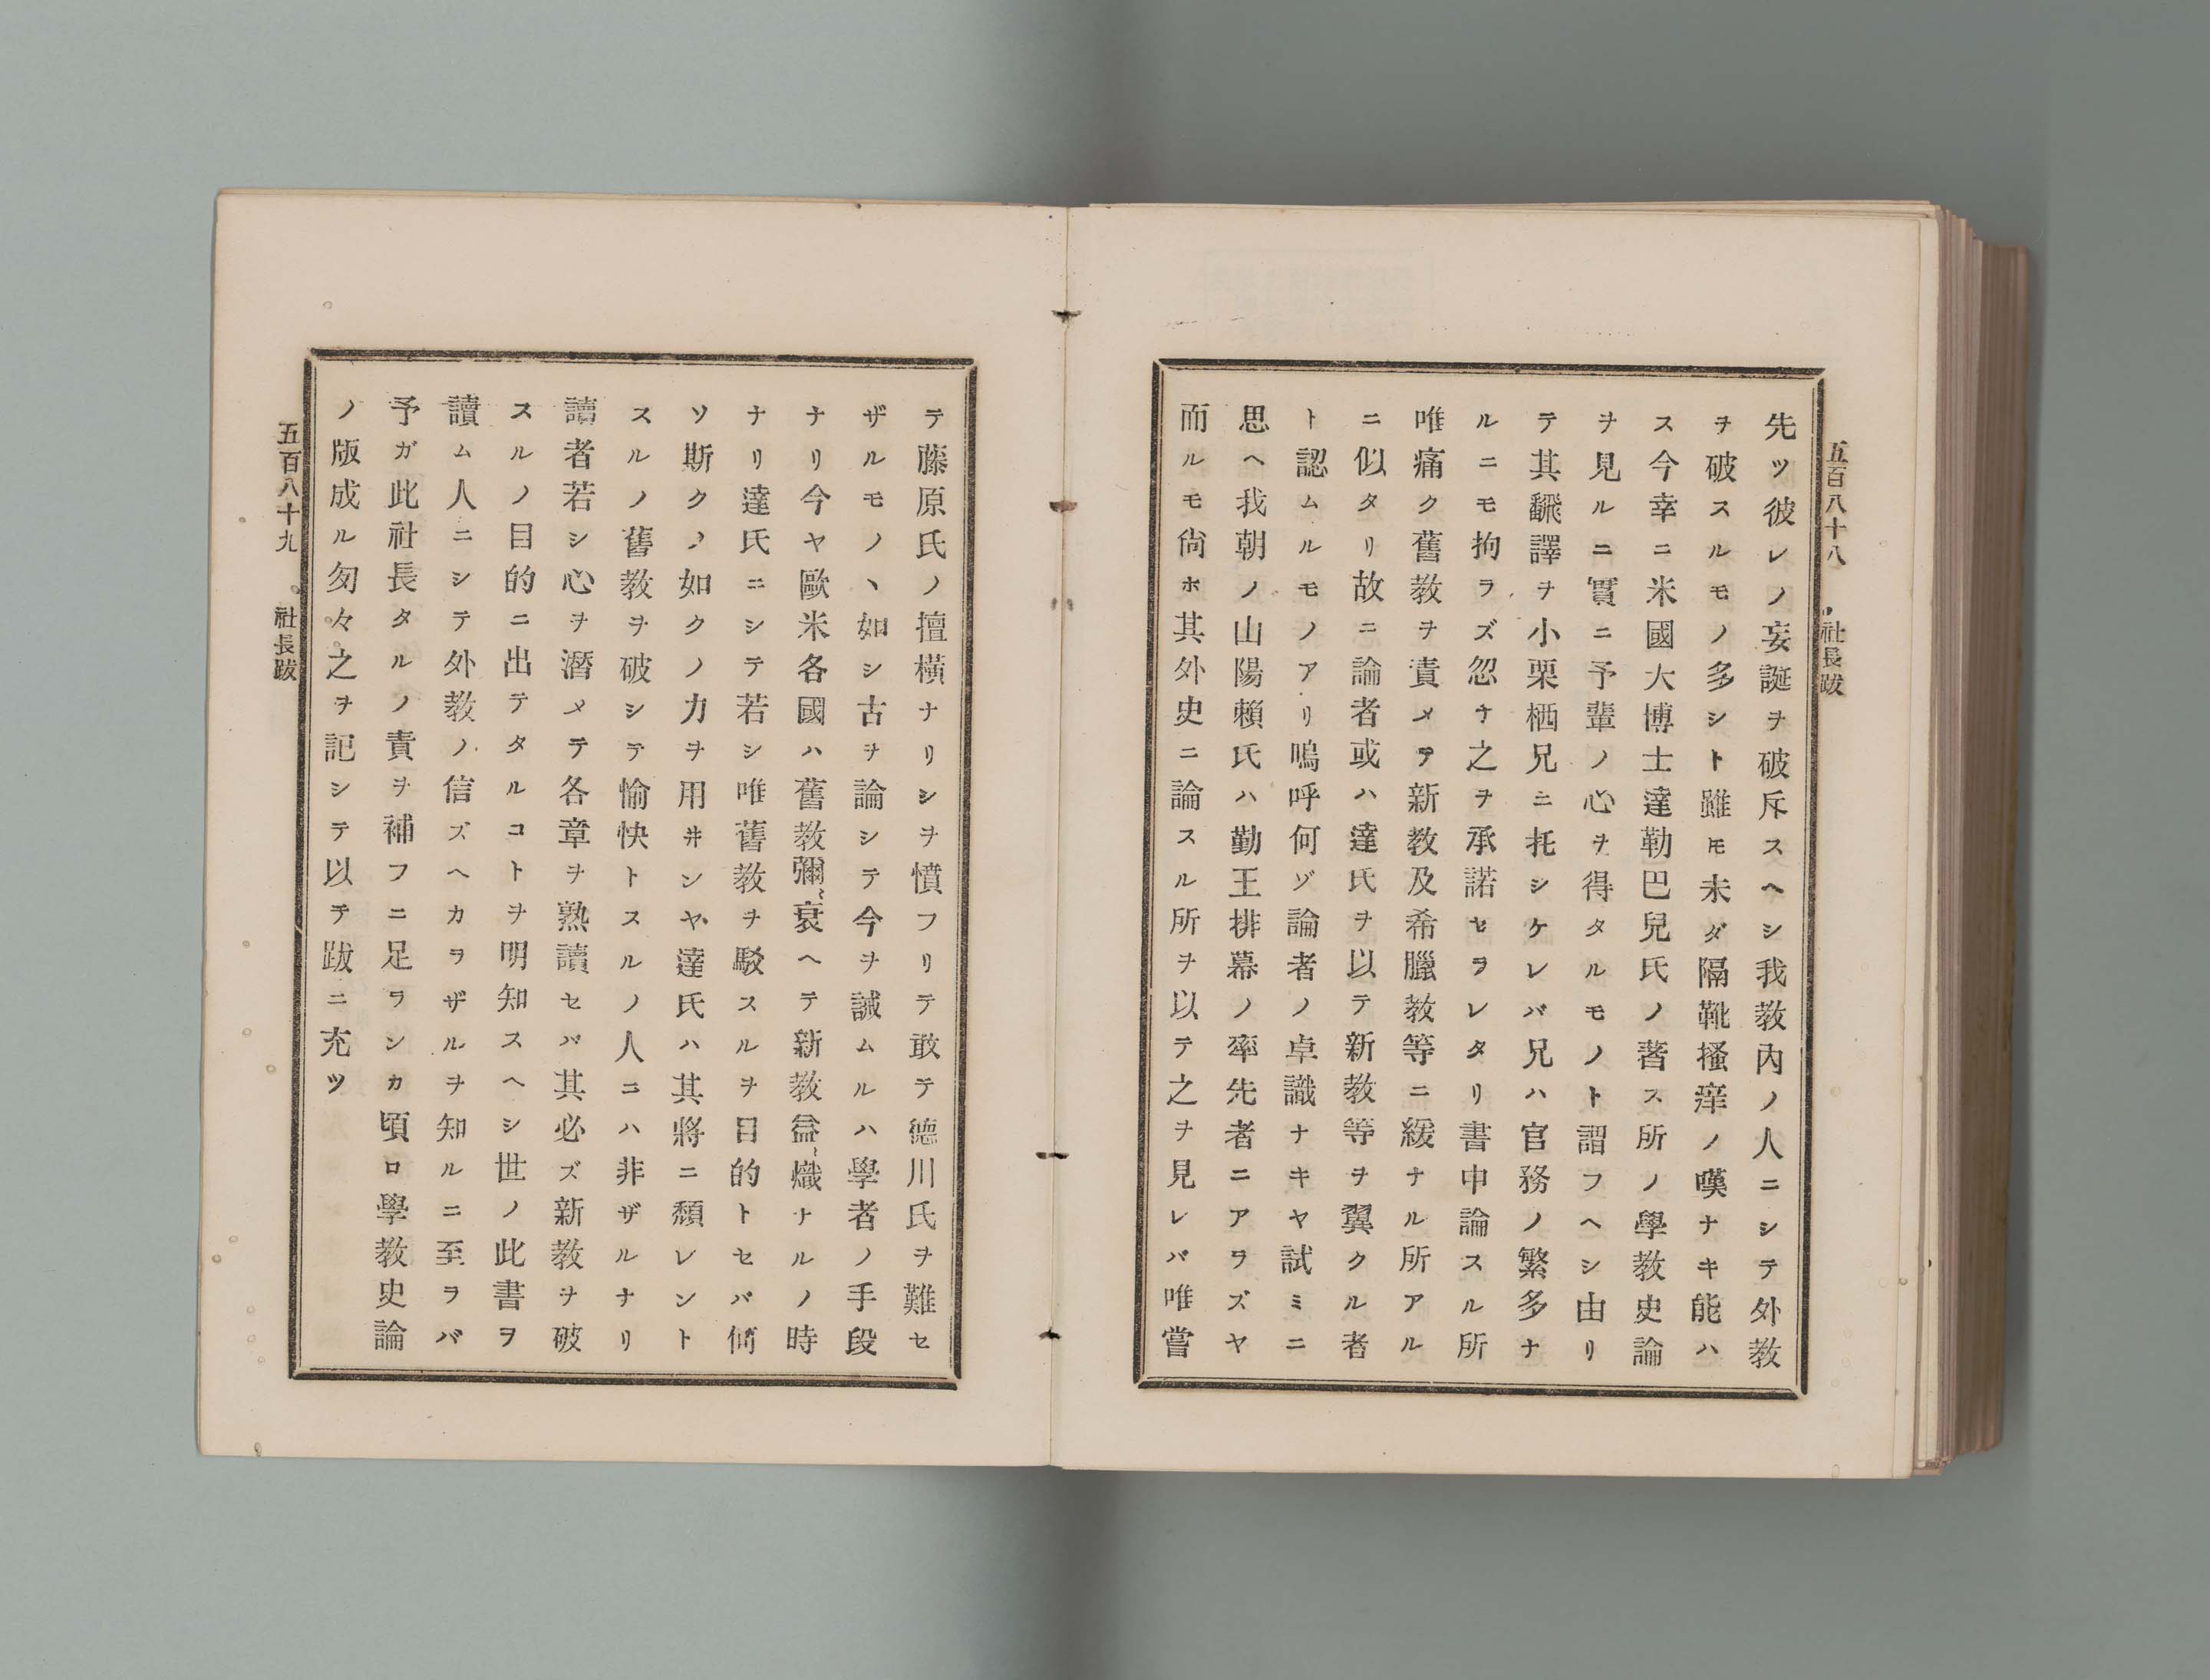 五百八十八　社長跋
先ツ彼レノ妄誕ヲ破斥スヘシ我教內ノ人ニシテ外教
ヲ破スルモノ多シト雖モ未ダ隔靴搔痒ノ嘆ナキ能ハ
ス今幸ニ米國大博士達勒巴兒氏ノ著ス所ノ學教史論
ヲ見ルニ實ニ予輩ノ心ヲ得タルモノト謂フヘシ由リ
テ其飜譯ヲ小栗栖兄ニ托シケレバ兄ハ官務ノ繁多ナ
ルニモ拘ラズ忽チ之ヲ承諾セラレタリ書中論スル所
唯痛ク舊教ヲ責メテ新教及希臘教等ニ緩ナル所アル
ニ似タリ故ニ論者或ハ達氏ヲ以テ新教等ヲ翼クル者
ト認ムルモノアリ嗚呼何ゾ論者ノ卓識ナキヤ試ミニ
思ヘ我朝ノ山陽賴氏ハ勤王排幕ノ率先者ニアラズヤ
而ルモ尙ホ其外史ニ論スル所ヲ以テ之ヲ見レバ唯嘗
テ藤原氏ノ擅橫ナリシヲ憤フリテ敢テ德川氏ヲ難セ
ザルモノヽ如シ古ヲ論シテ今ヲ誡ムルハ學者ノ手段
ナリ今ヤ歐米各國ハ舊教彌〻衰ヘテ新教益〻熾ナルノ時
ナリ達氏ニシテ若シ唯舊教ヲ駁スルヲ目的トセバ何
ソ斯ク〻如クノ力ヲ用井ンヤ達氏ハ其將ニ頽レント
スルノ舊教ヲ破シテ愉快トスルノ人ニハ非ザルナリ
讀者若シ心ヲ潛メテ各章ヲ熟讀セバ其必ズ新教ヲ破
スルノ目的ニ出テタルコトヲ明知スヘシ世ノ此書ヲ
讀ム人ニシテ外教ノ信ズヘカラザルヲ知ルニ至ラバ
予ガ此社長タルノ責ヲ補フニ足ラシカ頃ロ學教史論
ノ版成ル匆々之ヲ記シテ以テ跋ニ充ツ
五百八十九　社長跋